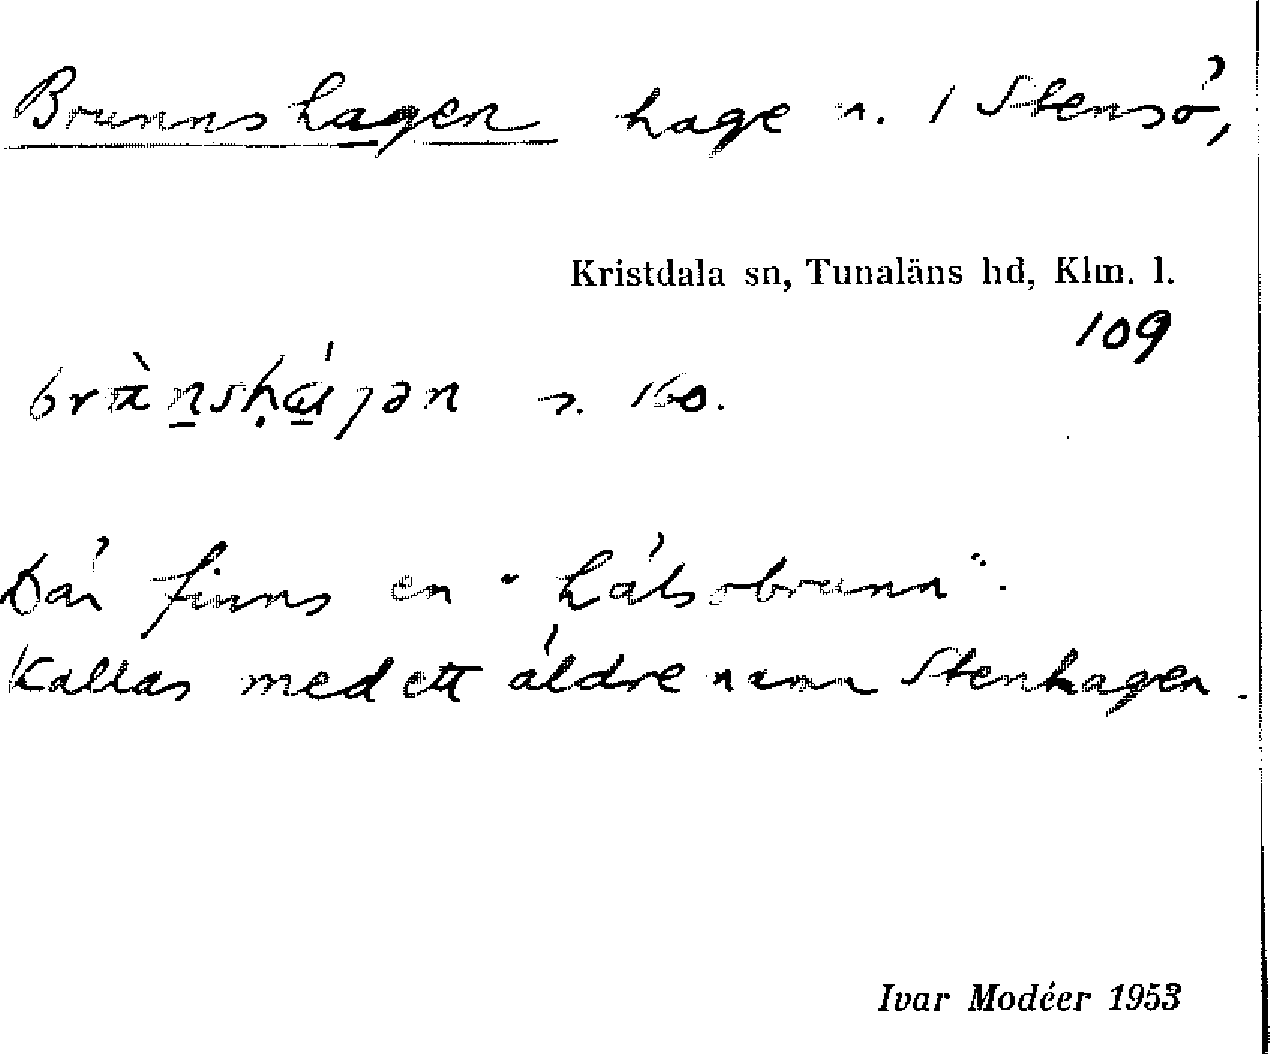 Brunnshagen hage n. i Stensö,
Kristdala sn, Tunaläns hd, Klm. l.
109
s. 160.
Där finns en "hälsobrunn".
Kallas med ett äldre namn Stenhagen.
Ivar Modéer 1953